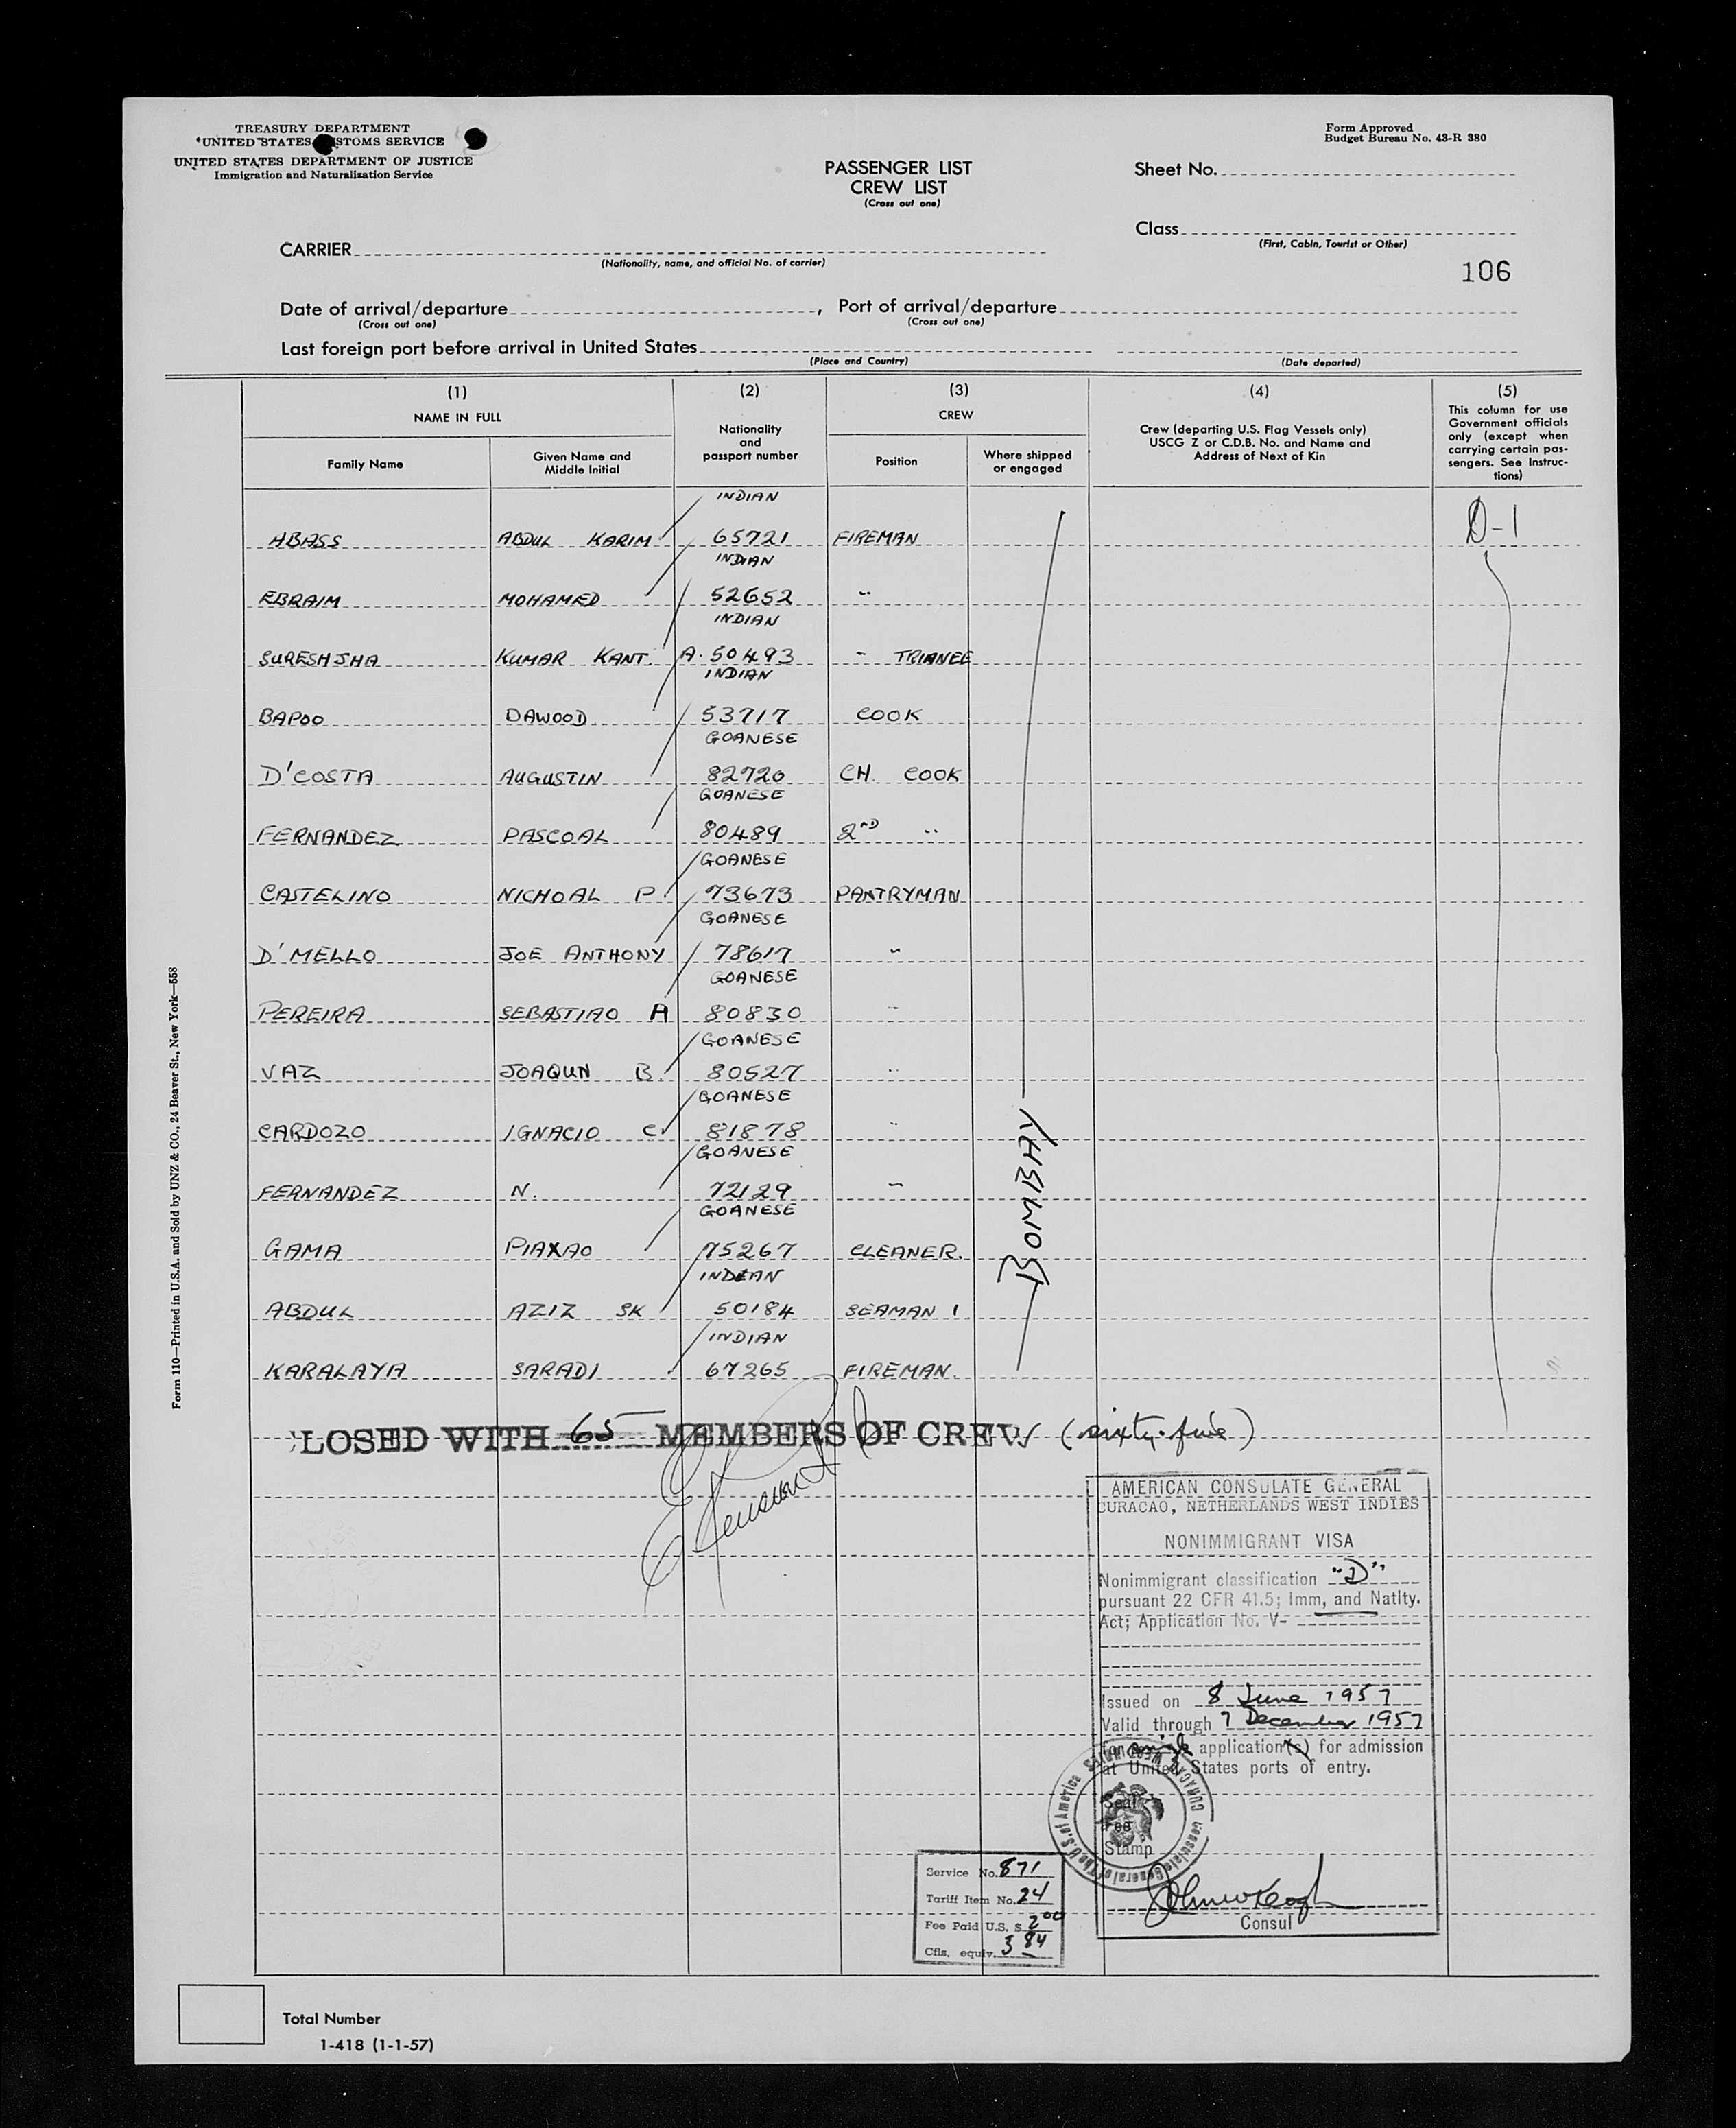 TREASURY DEPARTMENT
UNITED STATES CUSTOMS SERVICE
UNITED STATES DEPARTMENT OF JUSTICE
Immigration and Naturalization Service
Form Approved
Budget Bureau No. 43-R 380
PASSENGER LIST
CREW LIST
(Cross out one)
Sheet No.
Class
(First, Cabin, Tourist or Other)
CARRIER
(Nationality, name, and official No. of carrier)
106
Date of arrival/departure , Port of arrival/departure
(Cross out one) (Cross out one)
Last foreign port before arrival in United States
(Place and Country) (Date departed)
(1) (2) (3) (4) (5)
NAME IN FULL
Family Name
Given Name and
Middle Initial
Nationality
and
passport number
CREW
Position
Where shipped
or engaged
Crew (departing U.S. Flag Vessels only)
USCG Z or C.D.B. No. and Name and
Address of Next of Kin
This column for use
Government officials
only (except when
carrying certain pas-
sengers. See Instruc-
tions)
INDIAN
ABASS ABDUL KARIM 65721 FIREMAN D-1
INDIAN
EBRAIM MOHAMED 52652 "
INDIAN
SURESHJHA KUMAR KANT. A. 50493 " TRIANEE
INDIAN
BAPOO DAWOOD 53717 COOK
GOANESE
D'COSTA AUGUSTIN 82720 CH. COOK
GOANESE
FERNANDEZ PASCOAL 80489 2ND "
GOANESE
CASTELINO NICHOAL P. 73673 PANTRYMAN
GOANESE
D'MELLO JOE ANTHONY 78617 "
GOANESE
PEREIRA SEBASTIAO A 80830 "
GOANESE
VAZ JOAQUN B. 80527 "
GOANESE
CARDOZO IGNACIO C 81878 "
GOANESE
FERNANDEZ N. 72129 "
GOANESE
GAMA PIAXAO 75267 CLEANER.
INDIAN
ABDUL AZIZ SK 50184 SEAMAN 1
INDIAN
KARALAYA SARADI 67265 FIREMAN.
BOMBAY
LOSED WITH 65 MEMBERS OF CREW (sixty-five)
AMERICAN CONSULATE GENERAL
CURACAO, NETHERLANDS WEST INDIES
NONIMMIGRANT VISA
Nonimmigrant classification "D"
pursuant 22 CFR 41.5; Imm, and Natlty.
Act; Application No. V-
Issued on 8 June 1957
Valid through 7 December 1957
for single application(s) for admission
at United States ports of entry.
Seal
Fee
Stamp
Consulate General of the U.S. of America
CURACAO WEST INDIES
John W Keogh
Consul
Service No. 871
Tariff Item No. 24
Fee Paid U.S. $ 2.00
Cfls. equiv. 3 84
Total Number
1-418 (1-1-57)
Form 110—Printed in U.S.A. and Sold by UNZ & CO., 24 Beaver St., New York—558